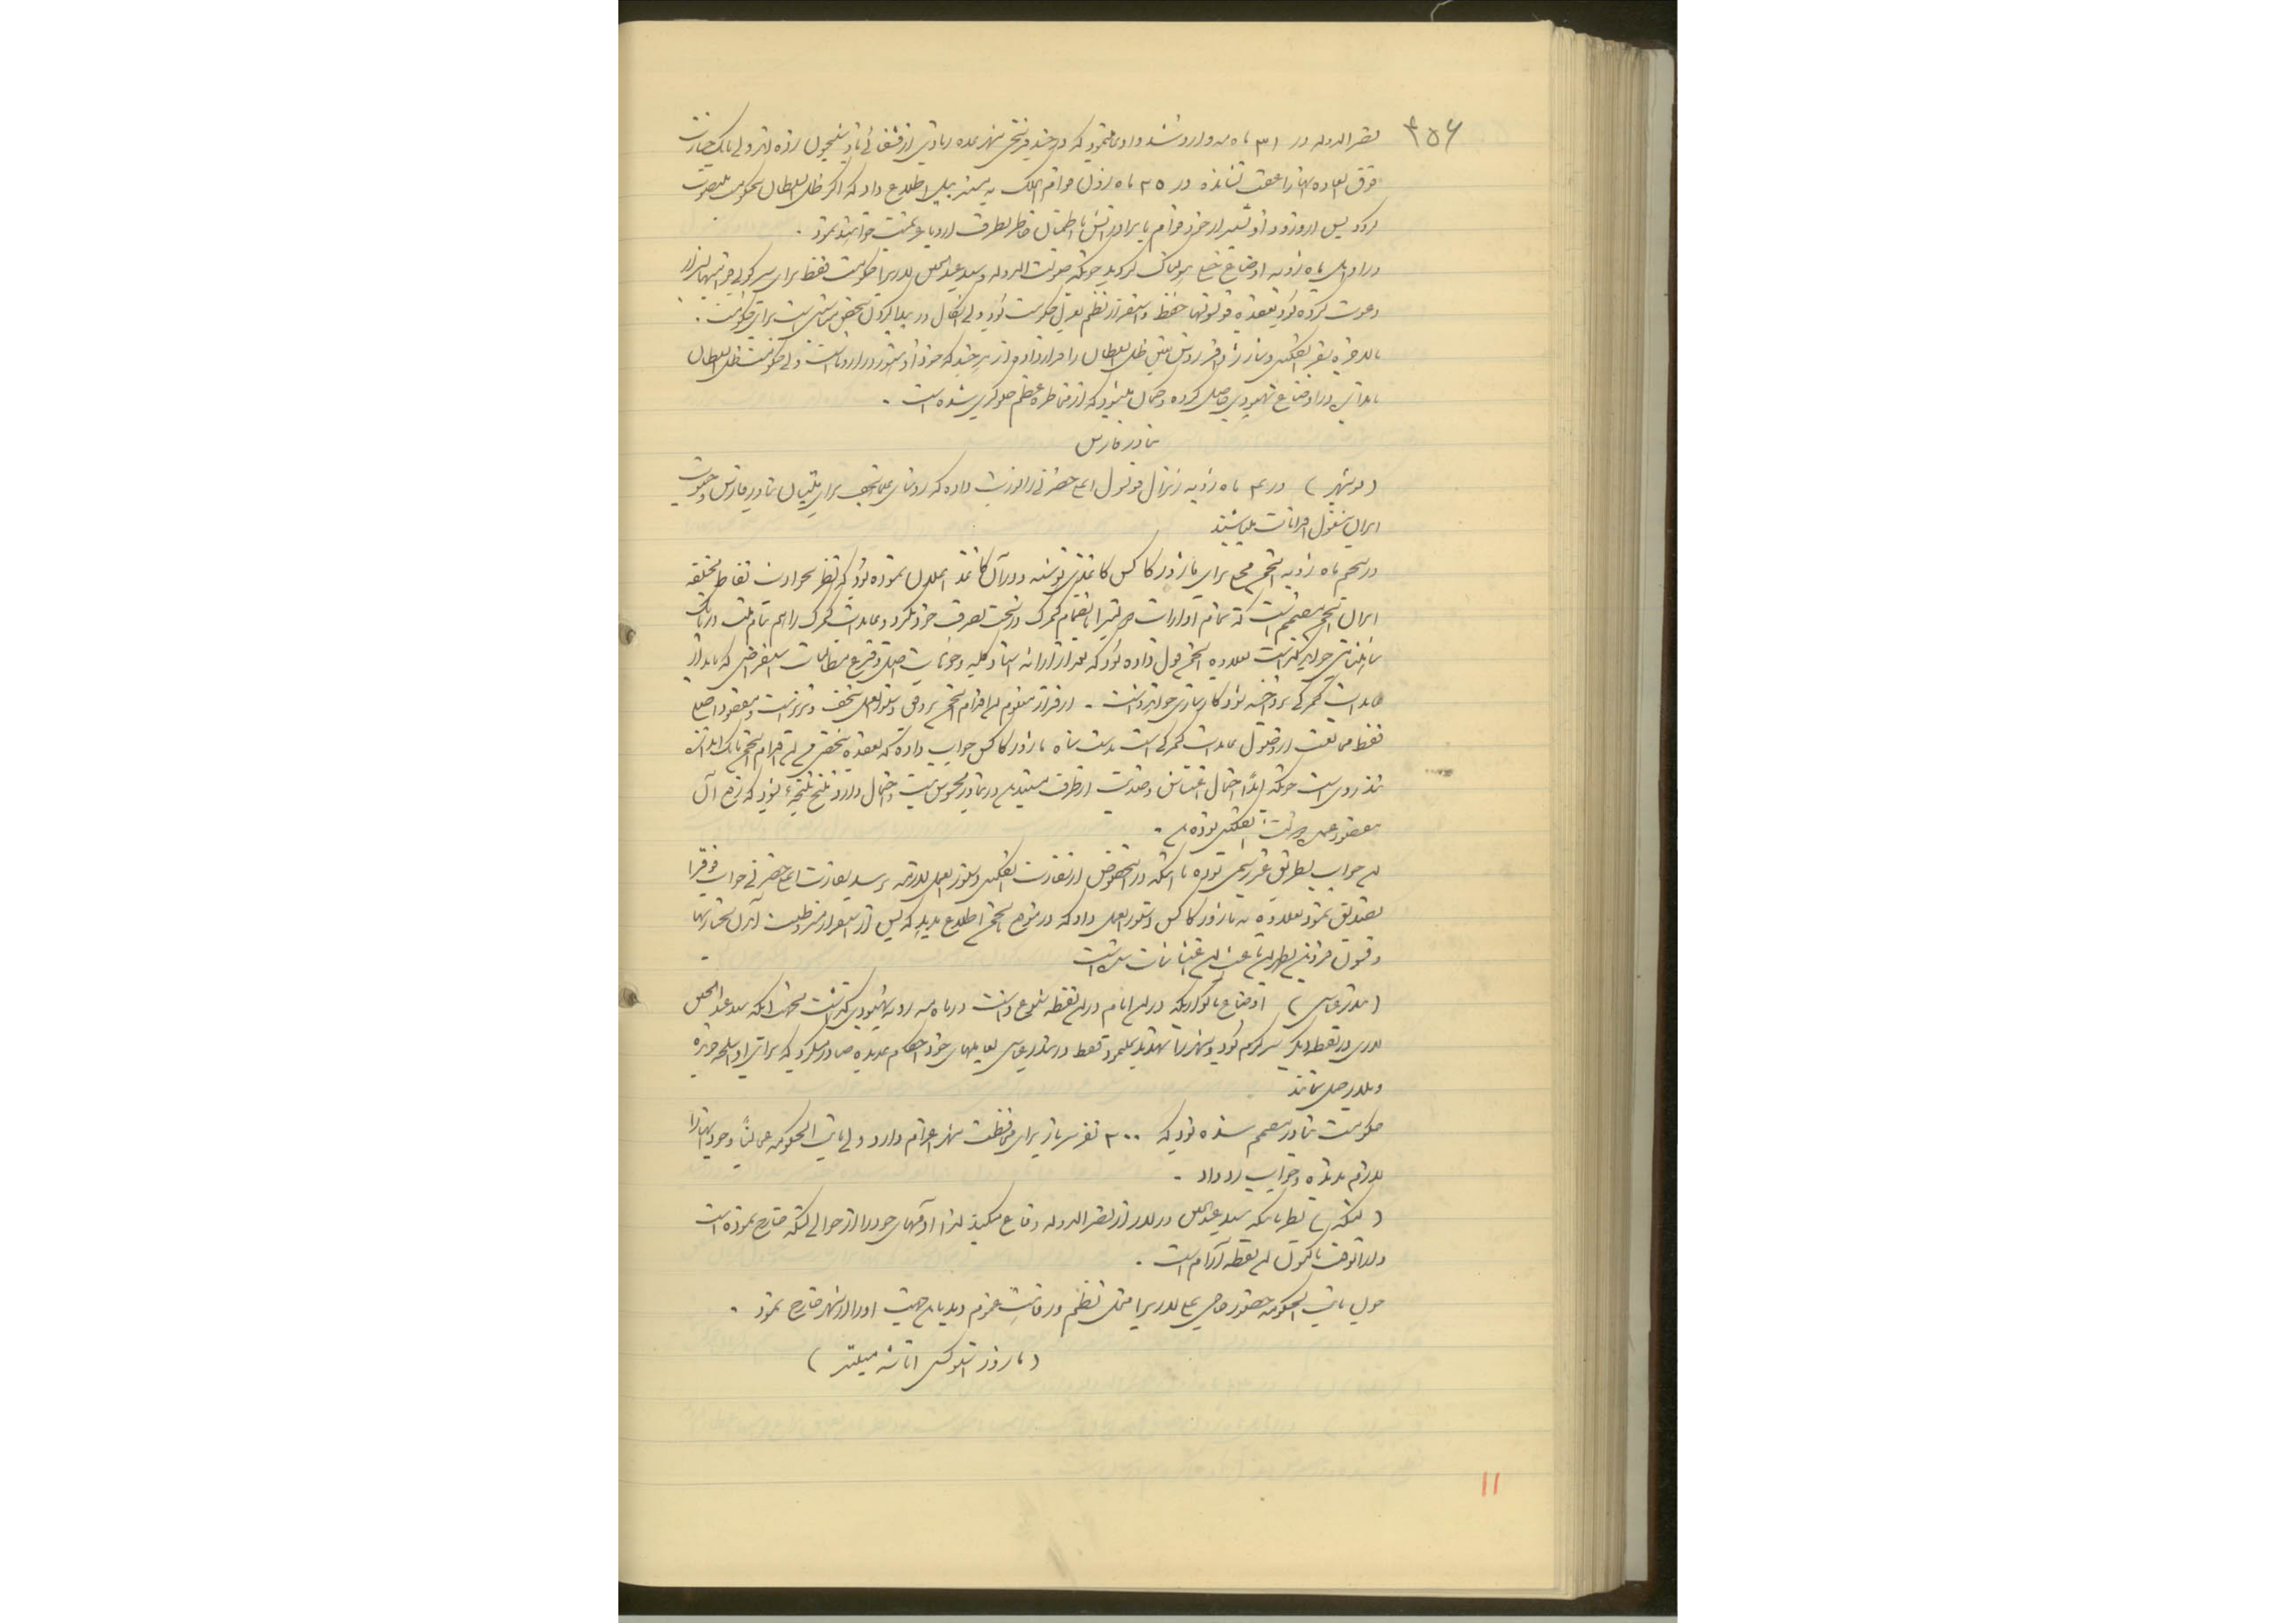 ۳۵۶
نصرالدوله در ۳۱ ماه مه وارد شد و ادعا نمود که در چند فرسخی شهر عده زیادی از قشقائی باو شبیخون زده اند ولی با یک جسارت
فوق العاده آنها را عقب نشانده در ۲۵ ماه ژون قوام الملک به مستر بیل اطلاع داد که اگر ظل السلطان بحکومت منصوب
گردد پس از ورود او بشیراز خود قوام با برادرانش با اطمینان خاطر بطرف اروپا عزیمت خواهند نمود .
در اوایل ماه ژویه اوضاع خیلی هولناک گردید چونکه صولت الدوله و سید عبدالحسین لاری را حکومت فقط برای سرکوبی قوامیها بشیراز
دعوت کرده بود بعقیده قونسولها حفظ و استقرار نظم با بودن حکومت بود ولی اشکال در پیدا کردن شخص مناسبی است برای حکومت .
بالاخره سفیر انگلیس و شارژ دافر روس تعیین ظل السلطان را قرار داده اند هر چند که خود او هنوز در اروپا است ولی حکومت ظل السلطان
باندازه در اوضاع بهبودی حاصل کرده و گمان میشود که از مخاطره عظیم جلوگیری شده است .
بنادر فارس
(بوشهر) در ۳ ماه ژویه ژنرال قونسول اعلیحضرتی راپورت داده که روسای علمای نجف برای ملتیان بنادر فارس و جنوب
ایران مشغول اقدامات میباشند
در پنجم ماه ژویه انجمن محلی برای ماژور کاکس کاغذی نوشته و در آن کاغذ اعلان نموده بود که نظر بحوادث نقاط مختلفه
ایران انجمن مصمم است که تمام ادارات دولتی را بانضمام گمرک در تحت تصرف خود بگیرد و عایدات گمرک را هم بنام ملت در بانک
شاهنشاهی خواهد گذاشت بعلاوه انجمن قول داده بود که بعد از ارائه اسناد کلیه وجوهات اصل و فرع مطالبات استقراضی که باید از
عایدات گمرکی پرداخته شود کارسازی خواهد داشت . از قرار معلوم این اقدام انجمن بر وفق دستورالعمل نجف و تبریز است و مقصود اصلی
فقط ممانعت از وصول عایدات گمرکی است بدست شاه ماژور کاکس جواب داده که بعقیده شخصی من این اقدام انجمن تا یک اندازه
تندروی است چونکه ابداً احتمال اغتشاش و ضدیت از طرف مستبدین در بنادر محسوس نیست و احتمال دارد منتج نتیجه شود که رفع آن
مقصود عمده دولت انگلیس بوده .
این جواب بطریق غیر رسمی بوده تا اینکه در این خصوص از سفارت انگلیس دستورالعمل لازمه برسد سفارت اعلیحضرتی جواب فوق را
تصدیق نمود بعلاوه به ماژور کاکس دستورالعمل داد که در موقع بانجمن اطلاع بدهد که پس از استقرار مشروطیت ایران مختار بها
و قبول
(بندرعباس) اوضاع ناگواریکه در این ایام در این نقطه شیوع داشت در ماه مه رو به بهبودی گذاشت بجهت اینکه سید عبدالحسین
لاری در نقطه دیگر سرگرم بود و شهر را تهدید نمینمود فقط در بندرعباس بعاملهای خود احکام عدیده صادر میکرد که برای او اسلحه خریده
و بلار حمل نمایند
حکومت بنادر مصمم شده بود که ۲۰۰ نفر سرباز برای محافظت شهر اعزام دارد ولی نایب الحکومه عجالتاً وجود آنها را
لازم ندیده و جواب رد داد .
(لنگه) نظر باینکه سید عبدالحسین در لار از نصرالدوله دفاع میکند لذا آدمهای خود را از حوالی لنگه خارج نموده است
و لهذا تا کنون این نقطه آرام است .
چون نایب الحکومه حضور حاجی علی لاری را مخل نظم و رفاهیت عموم دید باین جهت او را از شهر خارج نمود .
(ماژور استوکس اتاشه میلیتر)
۱۱